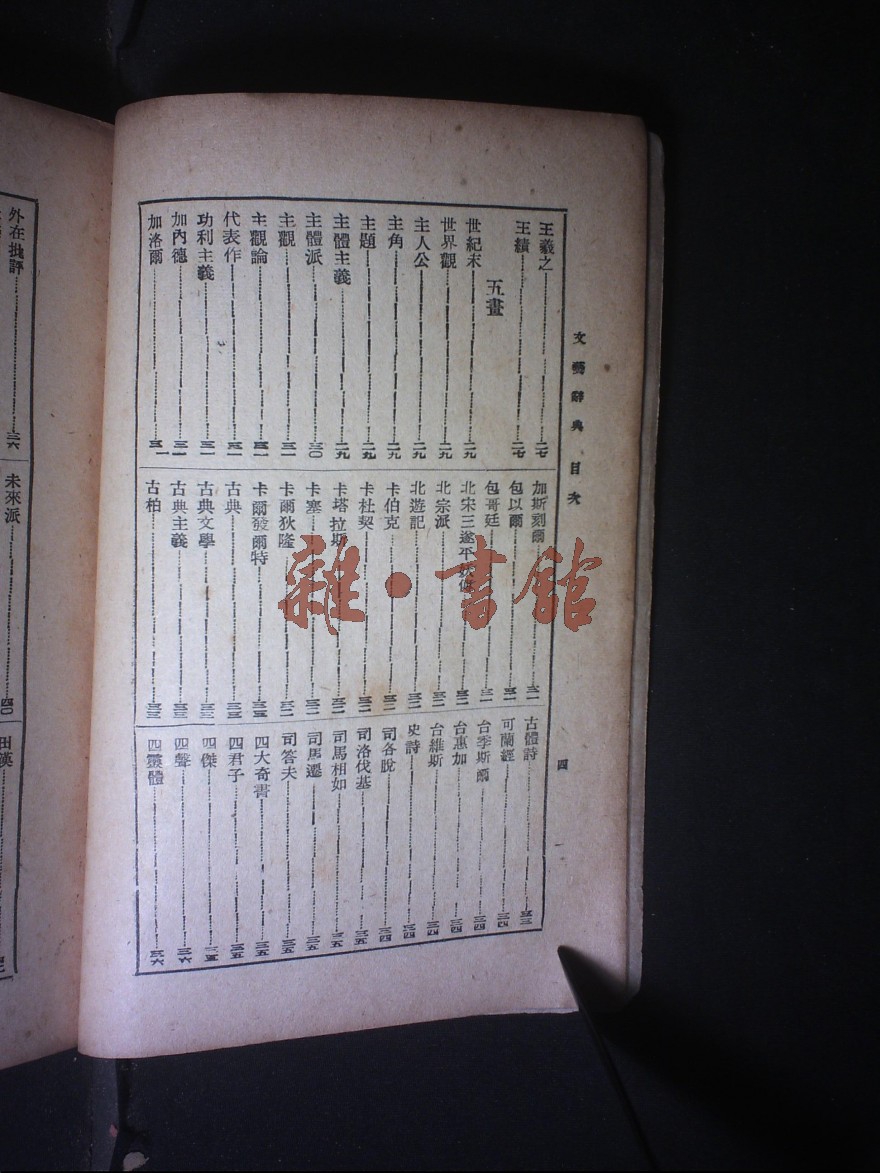 文藝辭典 目次
四
王羲之 二七
王績 二七
五畫
世紀末 二九
世界觀 二九
主人公 二九
主角 二九
主題 二九
主體主義 二九
主體派 三〇
主觀 三一
主觀論 三一
代表作 三一
功利主義 三一
加內德 三一
加洛爾 三一
加斯刻爾 三一
包以爾 三一
包哥廷 三一
北宋三遂平妖傳 三二
北宗派 三二
北遊記 三二
卡伯克 三二
卡杜契 三二
卡塔拉斯 三二
卡塞 三二
卡爾狄隆 三二
卡爾發爾特 三三
古典 三三
古典文學 三三
古典主義 三三
古柏 三三
古體詩 三三
可蘭經 三四
台季斯爾 三四
台惠加 三四
台維斯 三四
史詩 三四
司各脫 三四
司洛伐基 三五
司馬相如 三五
司馬遷 三五
司答夫 三五
四大奇書 三五
四君子 三五
四傑 三五
四聲 三六
四靈體 三六
外在批評 三六
未來派 四〇
田漢
雜·書館